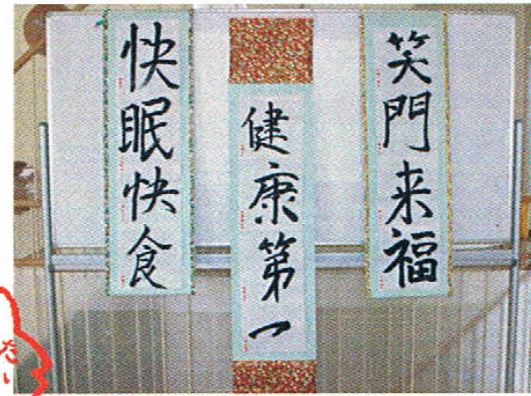 笑門来福
健康第一
快眠快食